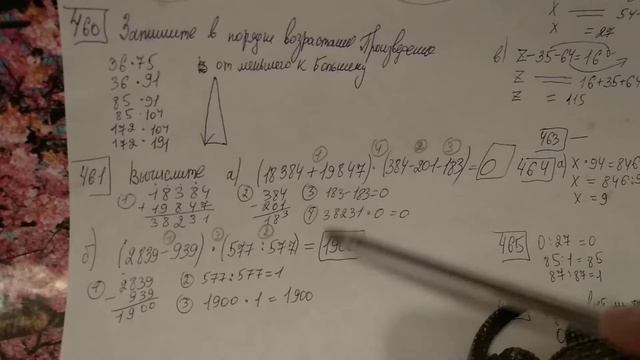 460 Запишите в порядке возрастания Произведения
от меньшего к большему
36·75
36·91
85·91
85·104
172·104
172·191
461 Вычислите а) (18384+19847)·(384-201-183)=0
① 18384
+ 19847
38231
② 384
- 201
183
③ 183-183=0
④ 38231·0=0
б) (2839-939)·(577:577)=
① 2839
- 939
1900
② 577:577=1
③ 1900·1=1900
X = 27
в) Z-35-64=16
Z = 16+35+64
Z = 115
463 —
464 а) X·94=846
X = 846:9
X = 9
465 0:27=0
85:1=85
87:87=1